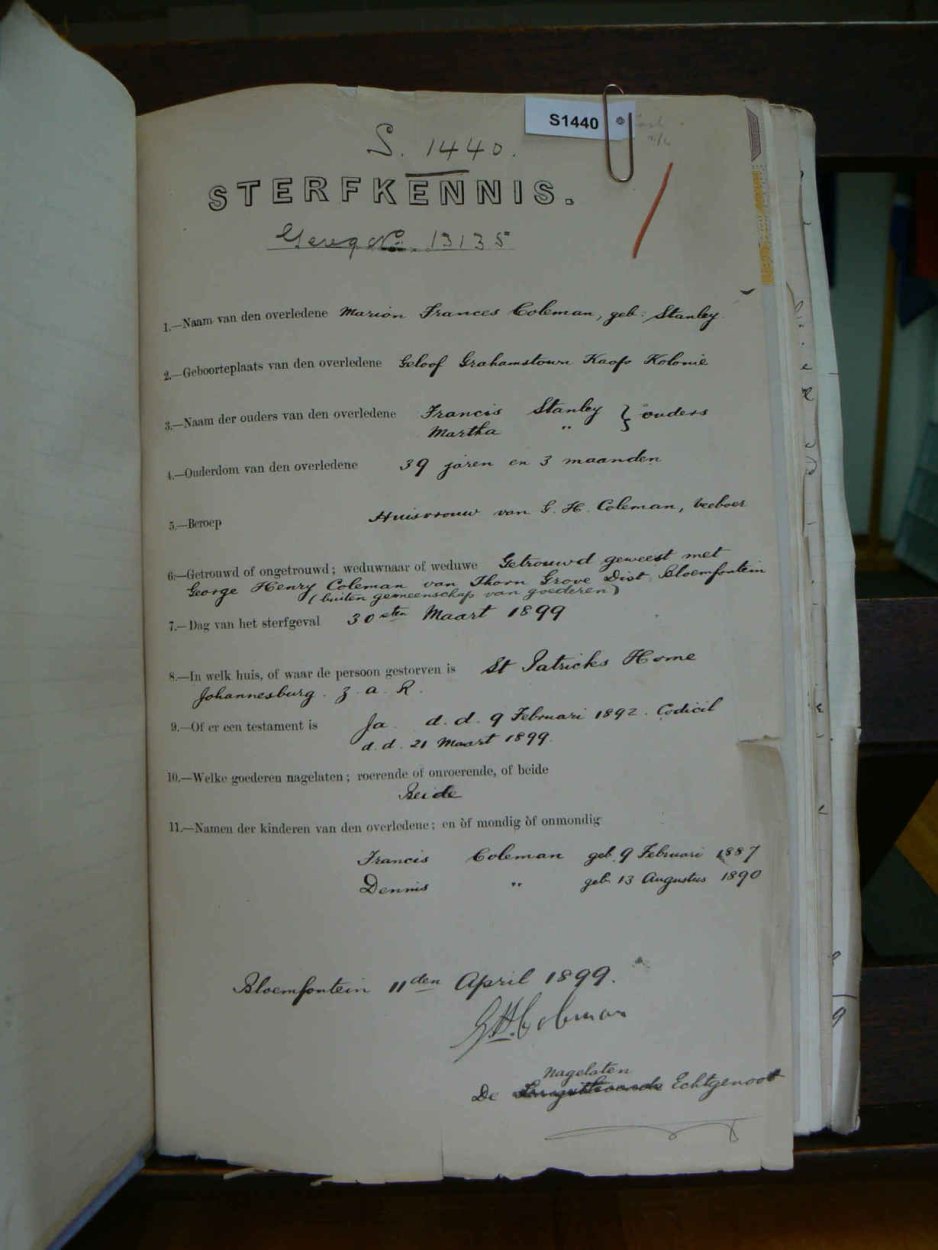 S1440
S. 1440.
STERFKENNIS.
Gereg No. 13135
1.—Naam van den overledene Marion Frances Coleman, geb: Stanley
2.—Geboorteplaats van den overledene Geloof Grahamstown Kaaps Kolonie
3.—Naam der ouders van den overledene Francis Stanley } ouders
Martha "
4.—Ouderdom van den overledene 39 jaren en 3 maanden
5.—Beroep Huisvrouw van G. H. Coleman, veeboer
6.—Getrouwd of ongetrouwd; weduwnaar of weduwe Getrouwd geweest met
George Henry Coleman van Thorn Grove Dist. Bloemfontein
(buiten gemeenschap van goederen)
7.—Dag van het sterfgeval 30sten Maart 1899
8.—In welk huis, of waar de persoon gestorven is St Patricks Home
Johannesburg. Z. A. R.
9.—Of er een testament is Ja d. d. 9 Februari 1892. Codicil
d. d. 21 Maart 1899
10.—Welke goederen nagelaten; roerende of onroerende, of beide
Beide
11.—Namen der kinderen van den overledene; en òf mondig òf onmondig
Francis Coleman geb. 9 Februari 1887
Dennis " geb. 13 Augustus 1890
Bloemfontein 11den April 1899.
GHColeman
Nagelaten
De Echtgenoot